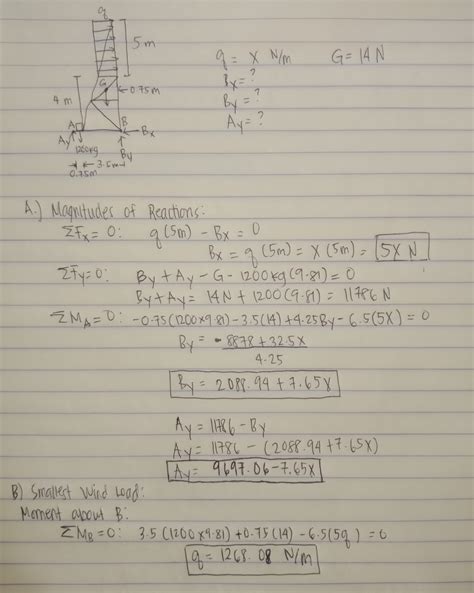 q
5m
q = X N/m G = 14N
G
0.75m
Bx = ?
4m
By = ?
A B
Bx
Ay = ?
Ay
1200kg
By
3.5m
0.75m
A.) Magnitudes of Reactions:
ΣFx = 0: q(5m) - Bx = 0
Bx = q(5m) = X(5m) = 5X N
ΣFy=0: By + Ay - G - 1200kg(9.81) = 0
By + Ay = 14N + 1200(9.81) = 11786N
ΣMA=0: -0.75(1200x9.81) - 3.5(14) + 4.25By - 6.5(5X) = 0
By = 8878 + 32.5X
4.25
By = 2088.94 + 7.65X
Ay = 11786 - By
Ay = 11786 - (2088.94 + 7.65X)
Ay = 9697.06 - 7.65X
B) Smallest Wind Load:
Moment about B:
ΣMB=0: 3.5(1200x9.81) + 0.75(14) - 6.5(5q) = 0
q = 1268.08 N/m